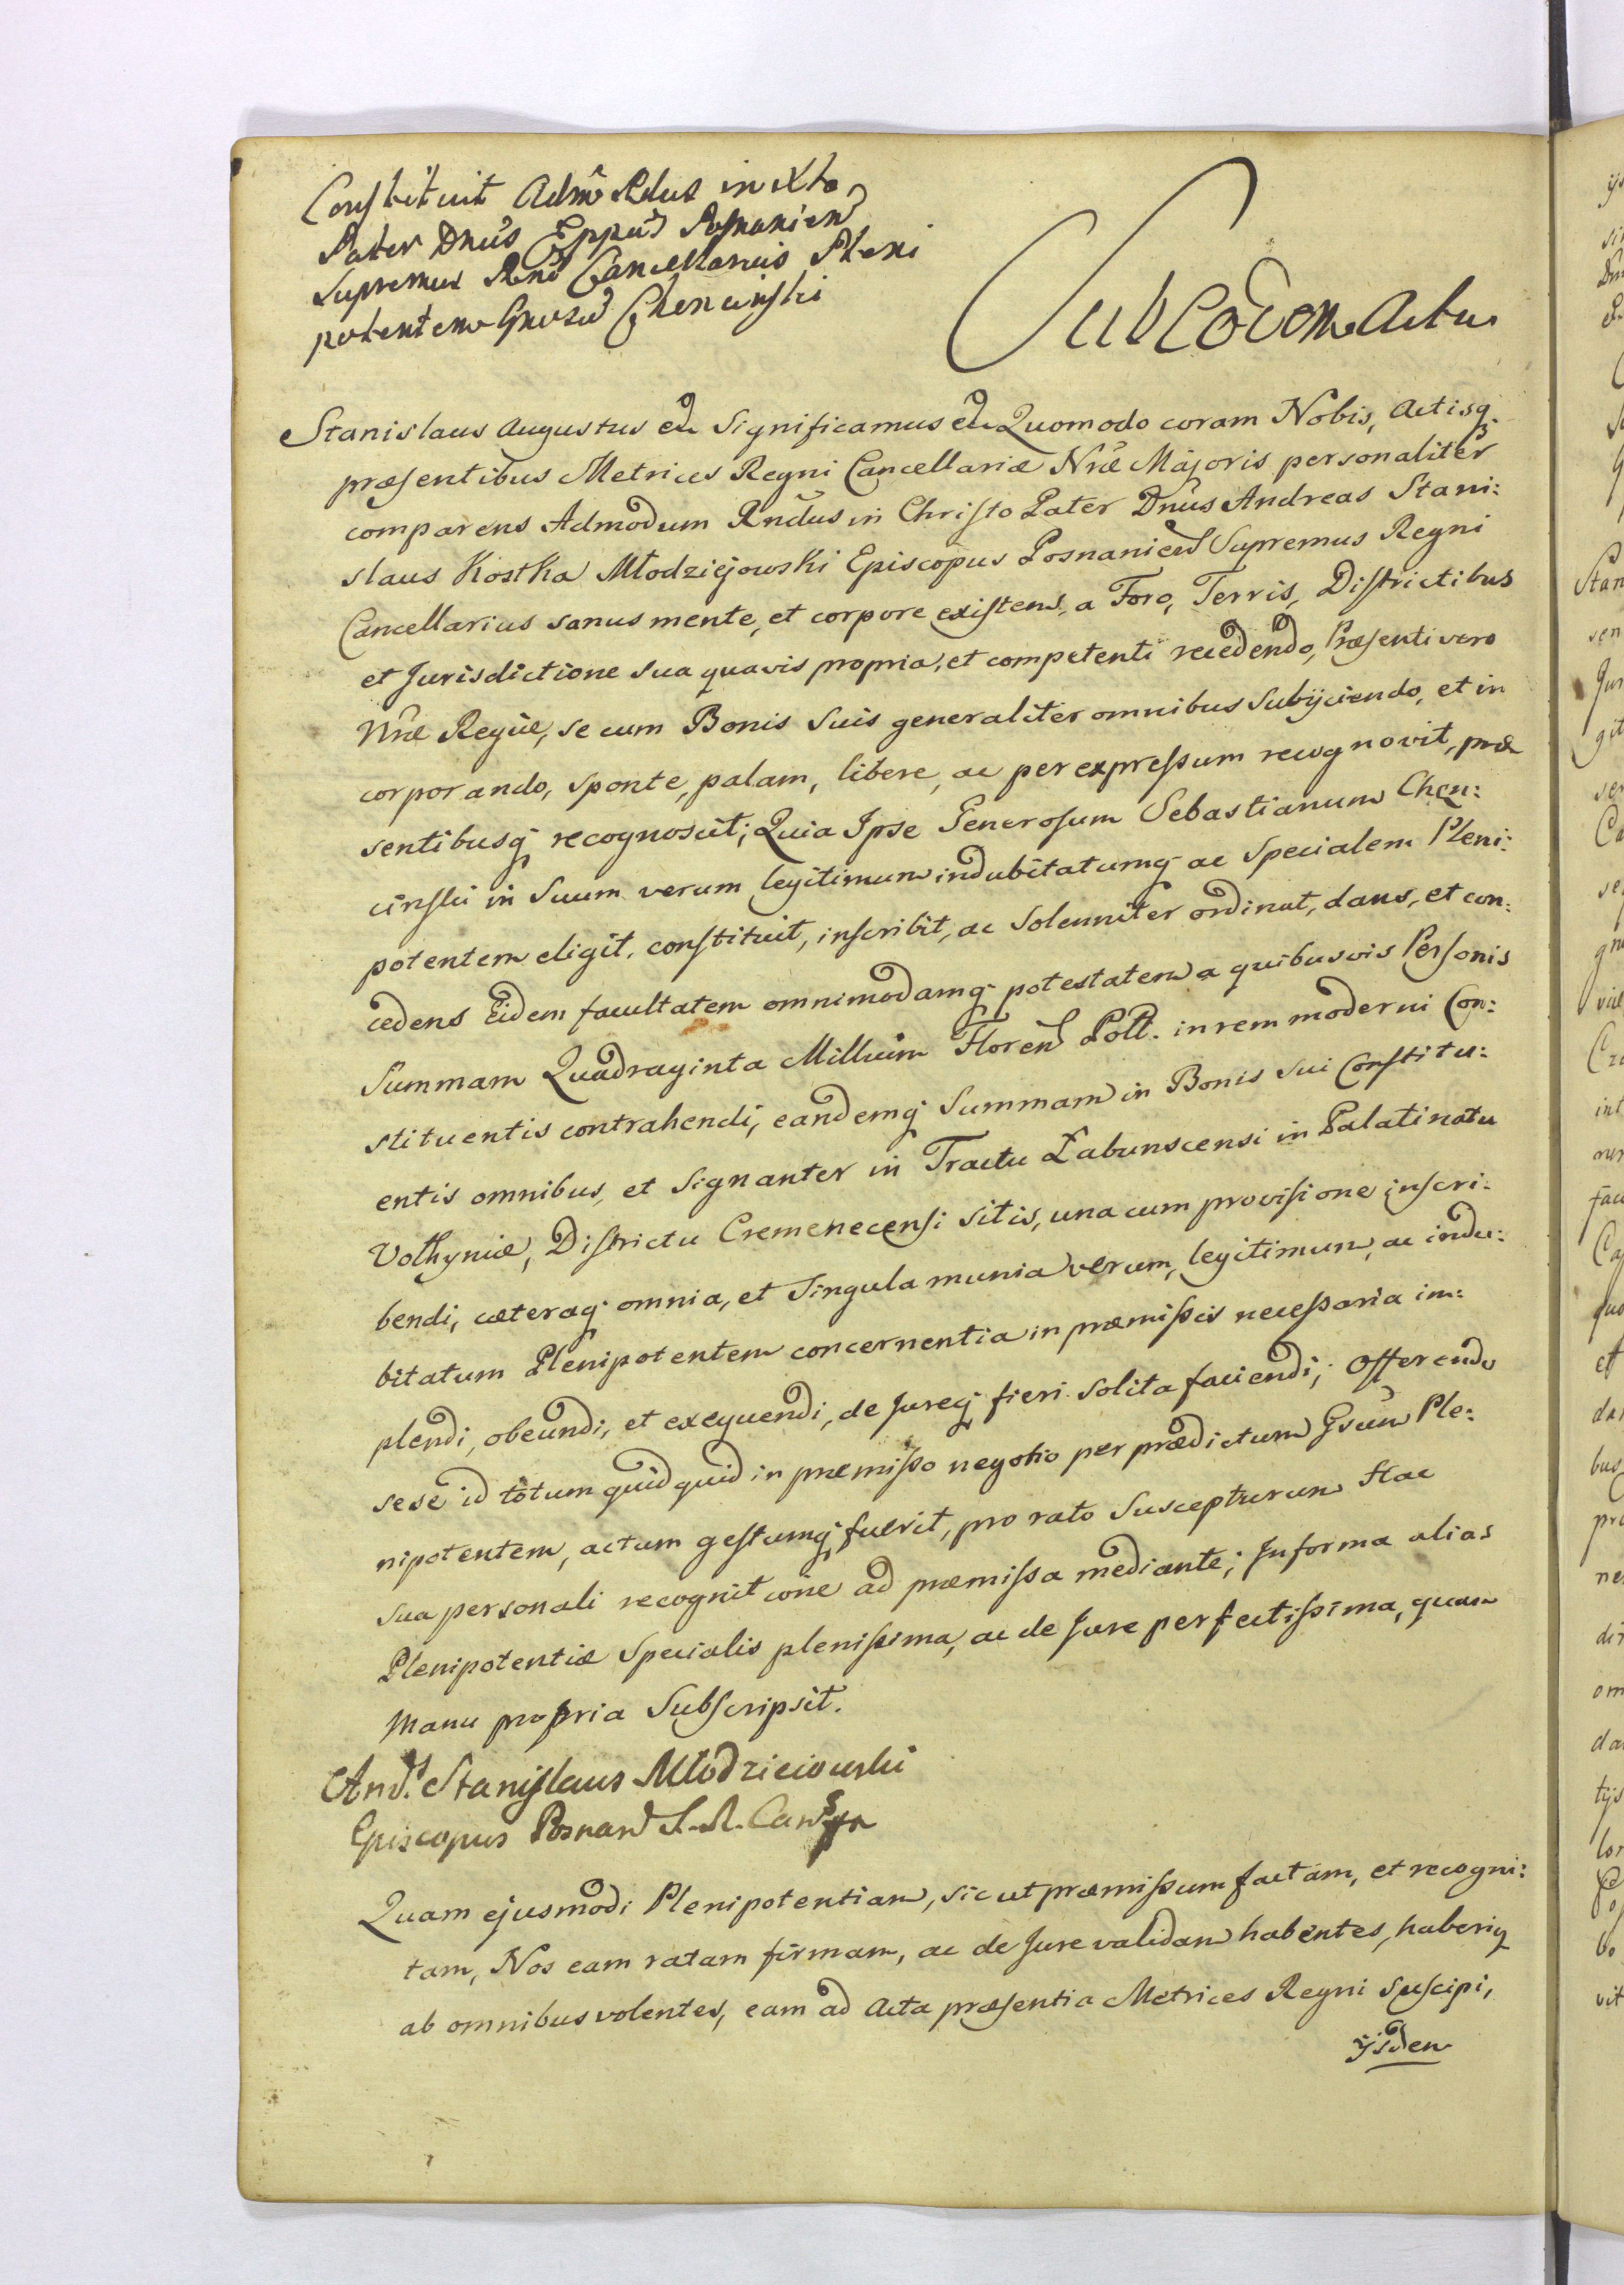 Constituit Admõ Rdus in Xto
Pater Dnus Eppus Posnanien
Supremus Rni Cancellarius Pleni
potentem Gnosu Chencinski
Sub Eodem Actu
Stanislaus Augustus etc Significamus etc Quomodo coram Nobis, Actisq.
præsentibus Metrices Regni Cancellariæ Nræ Majoris personaliter
comparens Admodum Rndus in Christo Pater Dnus Andreas Stani:
slaus Kostka Młodziejowski Episcopus Posnanien Supremus Regni
Cancellarius sanus mente, et corpore existens, a Foro, Terris, Districtibus
et Jurisdictione sua quavis propria, et competenti recedendo, Præsenti vero
Nræ Regiæ, se cum Bonis suis generaliter omnibus subijciendo, et in
corporando, sponte, palam, libere, ac per expressum recognovit, præ
sentibusq recognoscit; Quia Ipse Generosum Sebastianum Chen:
cinski in Suum verum legitimum indubitatumq ac Specialem Pleni:
potentem eligit, constituit, inscribit, ac Solenniter ordinat, dans, et con:
cedens Eidem facultatem omnimodamq potestatem a quibusvis Personis
Summam Quadraginta Millium Floren Poll. in rem moderni Con:
stituentis contrahendi, eandemq Summam in Bonis sui Constitu:
entis omnibus, et Signanter in Tractu Łabunscensi in Palatinatu
Volhyniæ, Districtu Cremenecensi sitis, una cum provisione inscri:
bendi, cæteraq omnia, et Singula munia verum, legitimum, ac indu:
bitatum Plenipotentem concernentia in præmissis necessaria im:
plendi, obeundi, et exequendi, de Jureq fieri solita faciendi; Offerendo
sese id totum quidquid in præmisso negotio per prædictum Gsum Ple:
nipotentem, actum gestumq fuerit, pro rato Suscepturum Hac
sua personali recognitione ad præmissa mediante; In forma alias
Plenipotentiæ Specialis plenissima, ac de Jure perfectissima, quam
Manu propria Subscripsit.
And. Stanislaus Młodzieiowski
Episcopus Posnan S. R. Can
Quam ejusmodi Plenipotentiam, sic ut præmissum factam, et recogni:
tam, Nos eam ratam firmam, ac de Jure validam habentes, haberiq
ab omnibus volentes, eam ad Acta præsentia Metrices Regni suscipi,
ijsdem